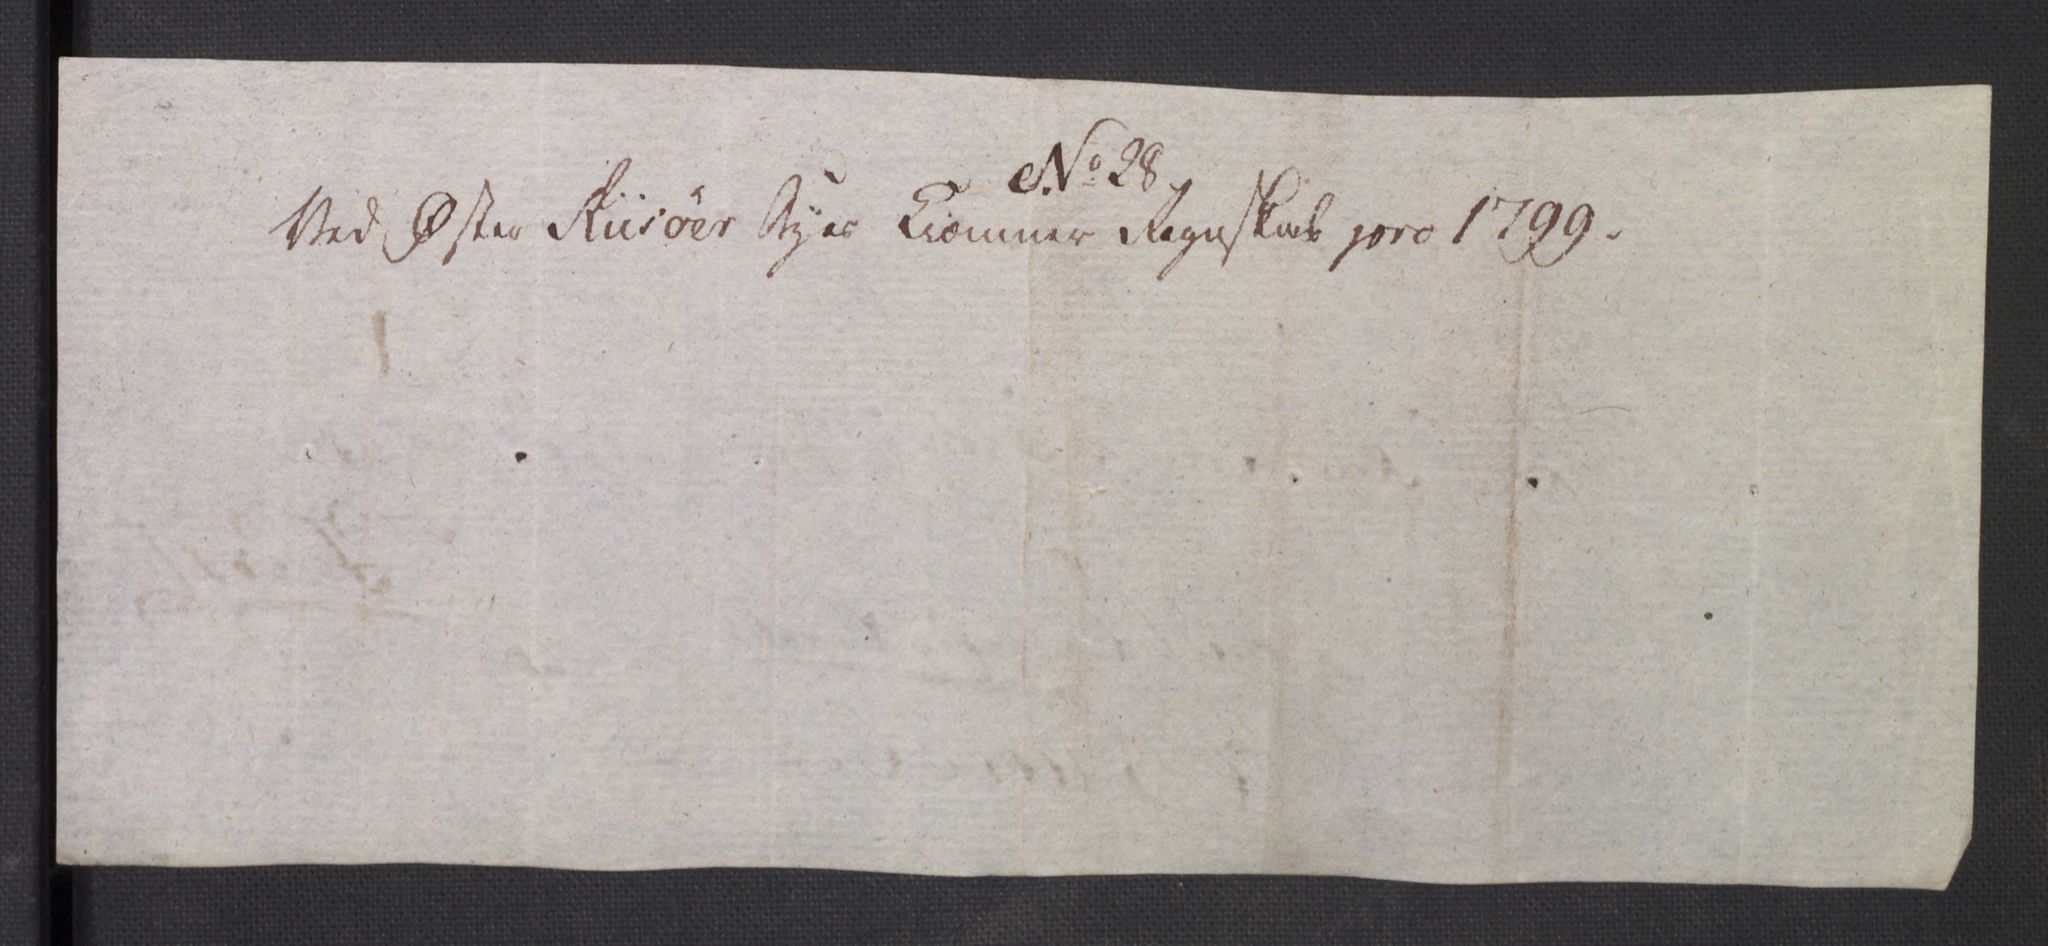 No 28
Ved Øster Riisöer Byes Kiemner Regnskab pro 1799.